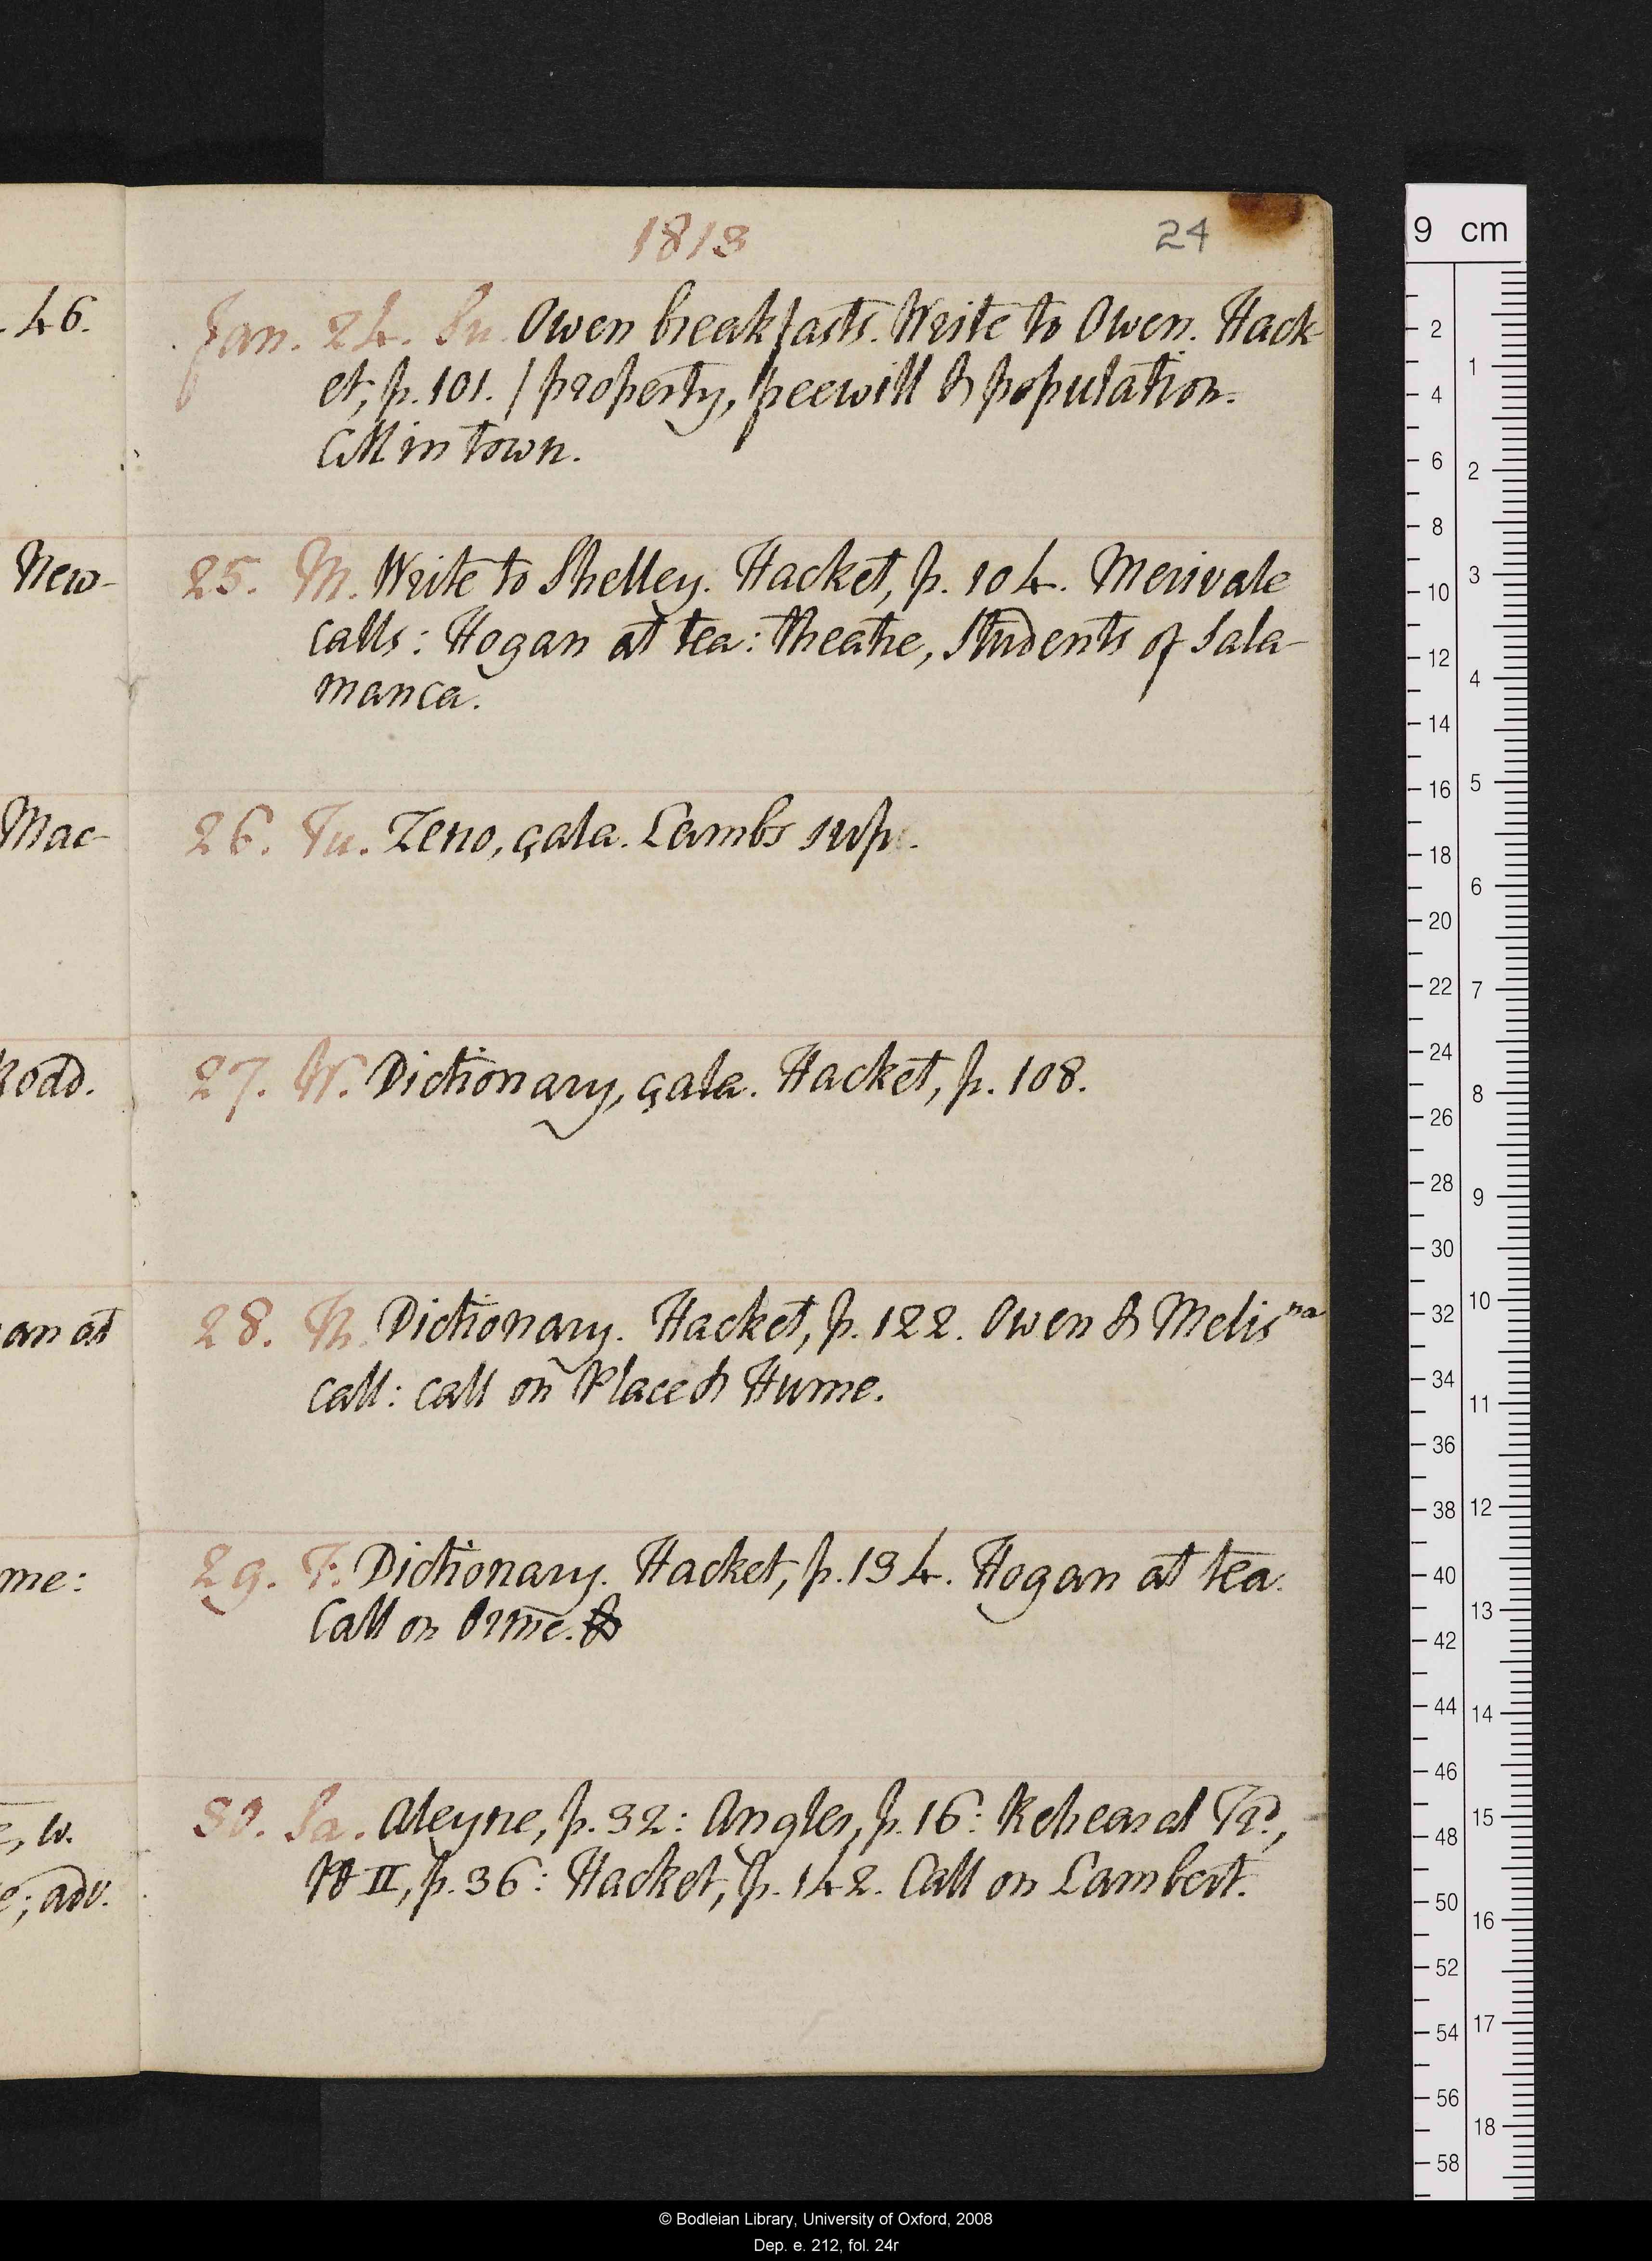 1813
24
Jan. 24. Su. Owen breakfasts. Write to Owen. Hack-
et, p. 101. / property, freewill & population.
CM in town.
25. M. Write to Shelley. Hacket, p. 104. Merivale
calls: Hogan at tea: theatre, Students of Sala-
manca.
26. Tu. Zeno, çala. Lambs sup.
27. W. Dictionary, çala. Hacket, p. 108.
28. Th. Dictionary. Hacket, p. 122. Owen & Melisna
call: call on Place & Hume.
29. F. Dictionary. Hacket, p. 134. Hogan at tea.
Call on Orme. &
30. Sa. Aleyne, p. 32: Angler, p. 16: Rehearsal Trd,
II, p. 36: Hacket, p. 142. Call on Lambert.
46.
New-
Mac-
Road.
an at
me:
e, w.
e; adv.
9 cm
2
4
6
8
10
12
14
16
18
20
22
24
26
28
30
32
34
36
38
40
42
44
46
48
50
52
54
56
58
1
2
3
4
5
6
7
8
9
10
11
12
13
14
15
16
17
18
© Bodleian Library, University of Oxford, 2008
Dep. e. 212, fol. 24r